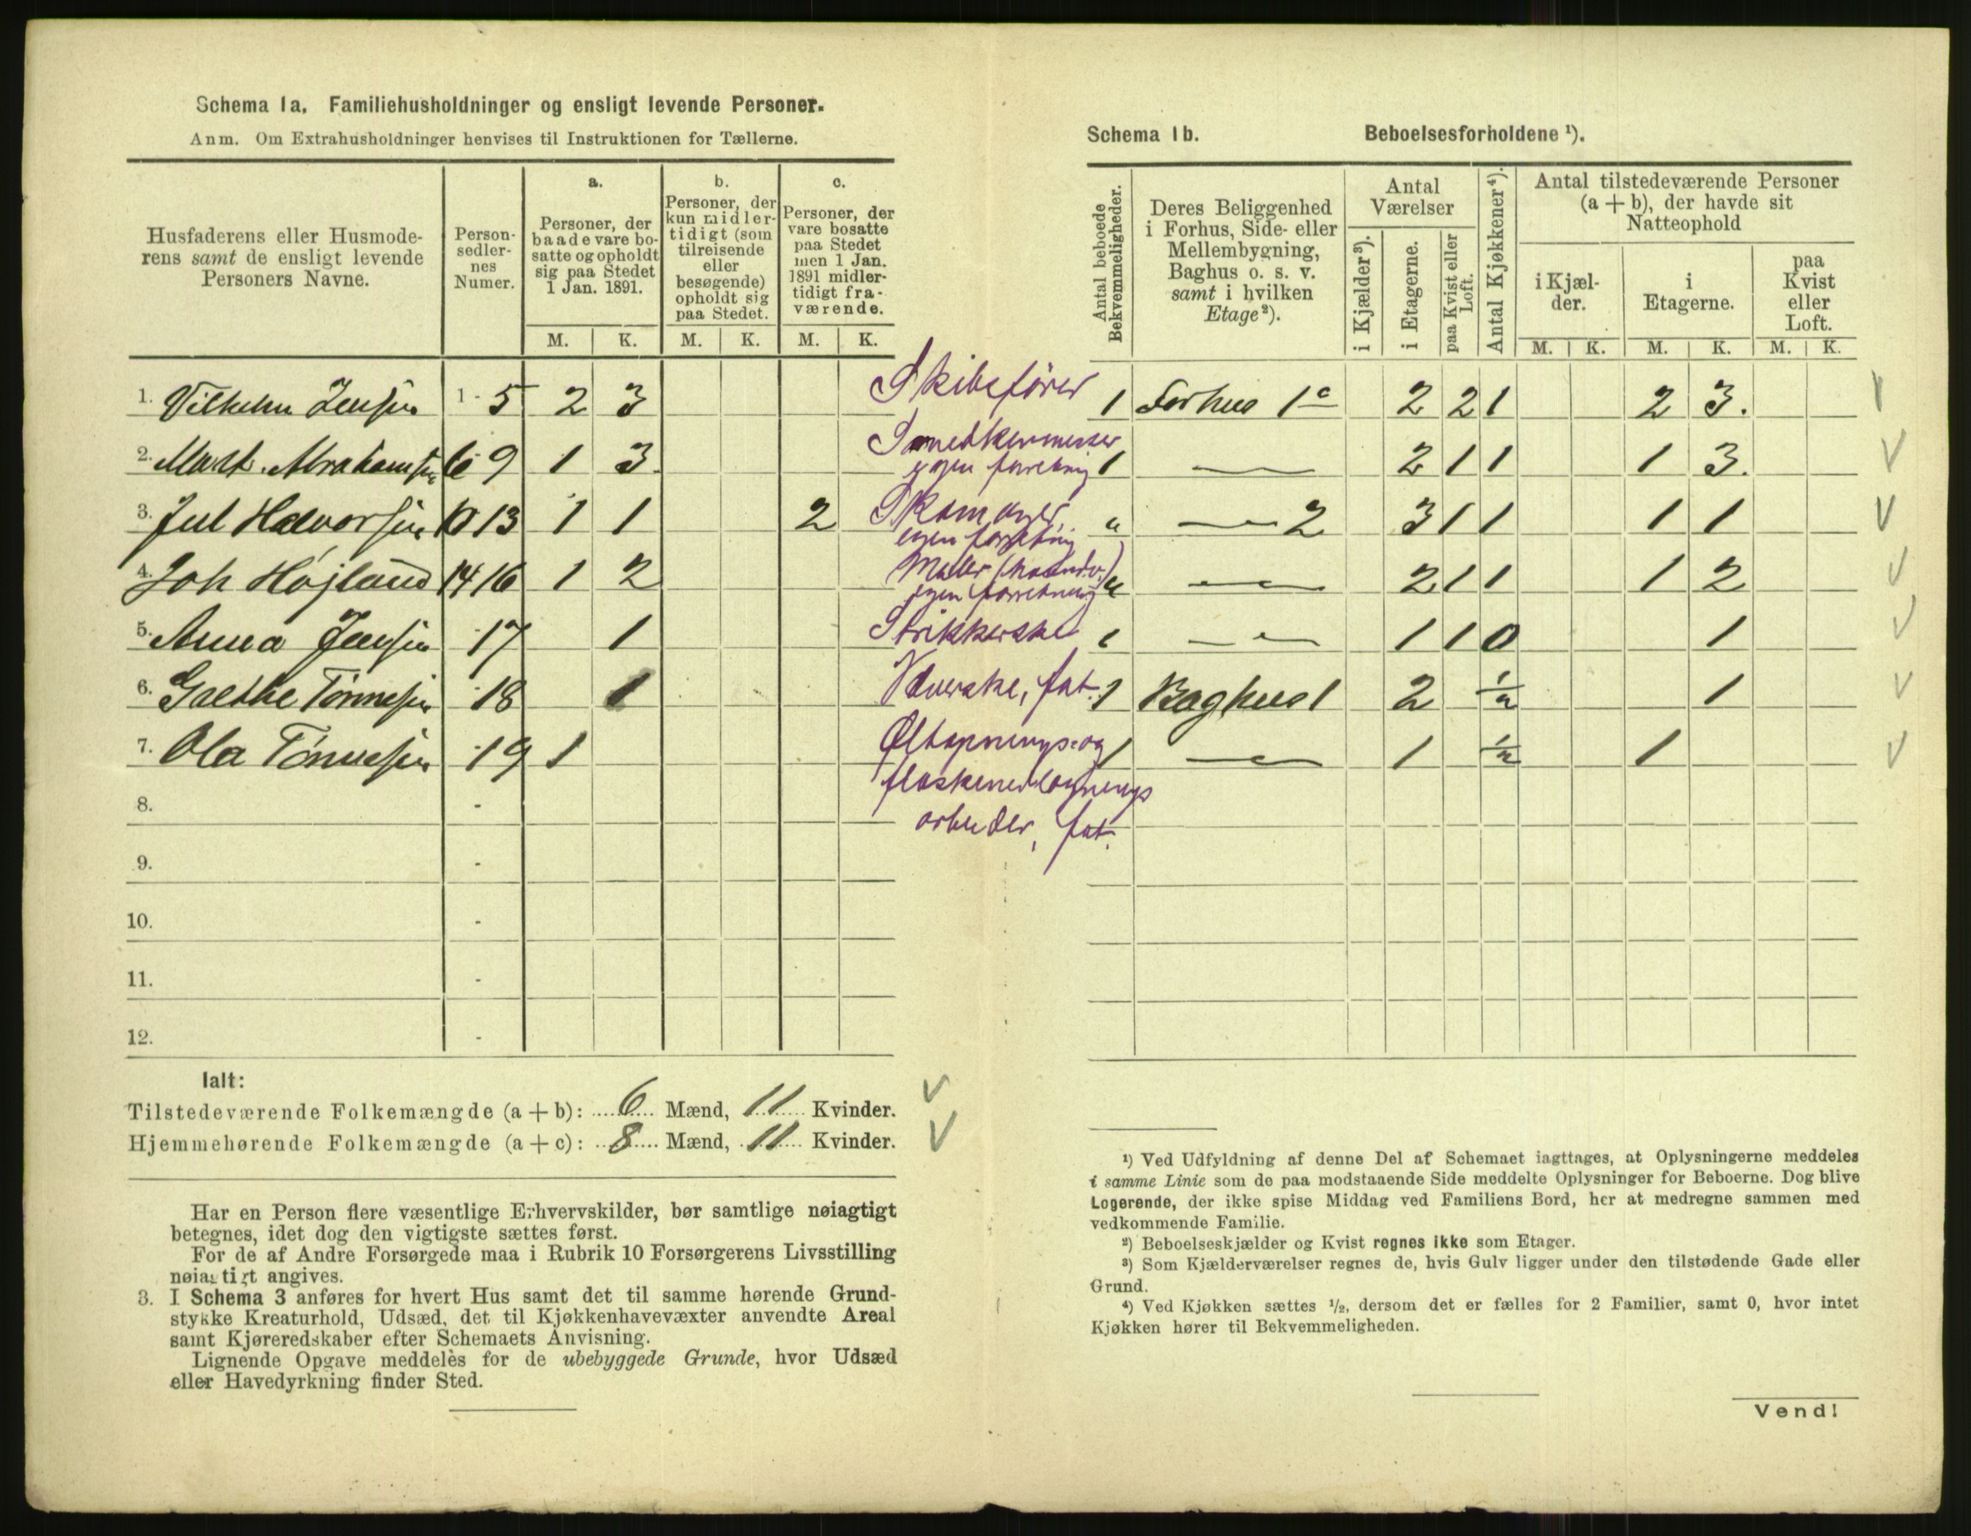 Schema 1a. Familiehusholdninger og ensligt levende Personer.
Anm. Om Extrahusholdninger henvises til Instruktionen for Tællerne.
Husfaderens eller Husmoderens samt de ensligt levende Personers Navne.
Personsedlernes Numer.
a. Personer, der baade vare bosatte og opholdt sig paa Stedet 1 Jan. 1891.
b. Personer, der kun midlertidigt (som tilreisende eller besøgende) opholdt sig paa Stedet.
c. Personer, der vare bosatte paa Stedet men 1 Jan. 1891 midlertidigt fraværende.
M. K. M. K. M. K.
1. Vilhelm Jensen 1-5 2 3 Skibsfører
2. Mart. Abrahamsen 6-9 1 3 egen forretning
3. Jul Halvorsen 10 13 1 1 2 Skomager, egen forretning
4. Joh Højland 14 16 1 2 Maler (haandv.) egen forretning
5. Anna Jensen 17 1 Strikkerske
6. Grethe Tønnesen 18 1 Væverske, fat.
7. Ola Tønnesen 19 1 Øltapnings- og
flaskenedlægnings
arbeider, fat.
8. -
9. -
10. -
11. -
12. -
Ialt:
Tilstedeværende Folkemængde (a+b): 6 Mænd, 11 Kvinder.
Hjemmehørende Folkemængde (a+c): 8 Mænd, 11 Kvinder.
Har en Person flere væsentlige Erhvervskilder, bør samtlige nøiagtigt
betegnes, idet dog den vigtigste sættes først.
For de af Andre Forsørgede maa i Rubrik 10 Forsørgerens Livsstilling
nøiagtigt angives.
3. I Schema 3 anføres for hvert Hus samt det til samme hørende Grund-
stykke Kreaturhold, Udsæd, det til Kjøkkenhavevæxter anvendte Areal
samt Kjøreredskaber efter Schemaets Anvisning.
Lignende Opgave meddeles for de ubebyggede Grunde, hvor Udsæd
eller Havedyrkning finder Sted.
Schema 1b. Beboelsesforholdene ¹).
Antal beboede Bekvemmeligheder.
Deres Beliggenhed i Forhus, Side- eller Mellembygning, Baghus o. s. v. samt i hvilken Etage²).
Antal Værelser
i Kjælder³).
i Etagerne.
paa Kvist eller Loft.
Antal Kjøkkener⁴).
Antal tilstedeværende Personer (a+b), der havde sit Natteophold
i Kjælder.
i Etagerne.
paa Kvist eller Loft.
M. K. M. K. M. K.
1 Forhus 1e 2 2 1 2 3.
1 — 2 1 1 1 3.
" — 2 3 1 1 1 1
" — 2 1 1 1 2
1 — 1 1 0 1
1 Baghus 1 2 ½ 1
1 — 1 ½ 1
¹) Ved Udfyldning af denne Del af Schemaet iagttages, at Oplysningerne meddeles
i samme Linie som de paa modstaaende Side meddelte Oplysninger for Beboerne. Dog blive
Logerende, der ikke spise Middag ved Familiens Bord, her at medregne sammen med
vedkommende Familie.
²) Beboelseskjælder og Kvist regnes ikke som Etager.
³) Som Kjælderværelser regnes de, hvis Gulv ligger under den tilstødende Gade eller
Grund.
⁴) Ved Kjøkken sættes ½, dersom det er fælles for 2 Familier, samt 0, hvor intet
Kjøkken hører til Bekvemmeligheden.
Vend!